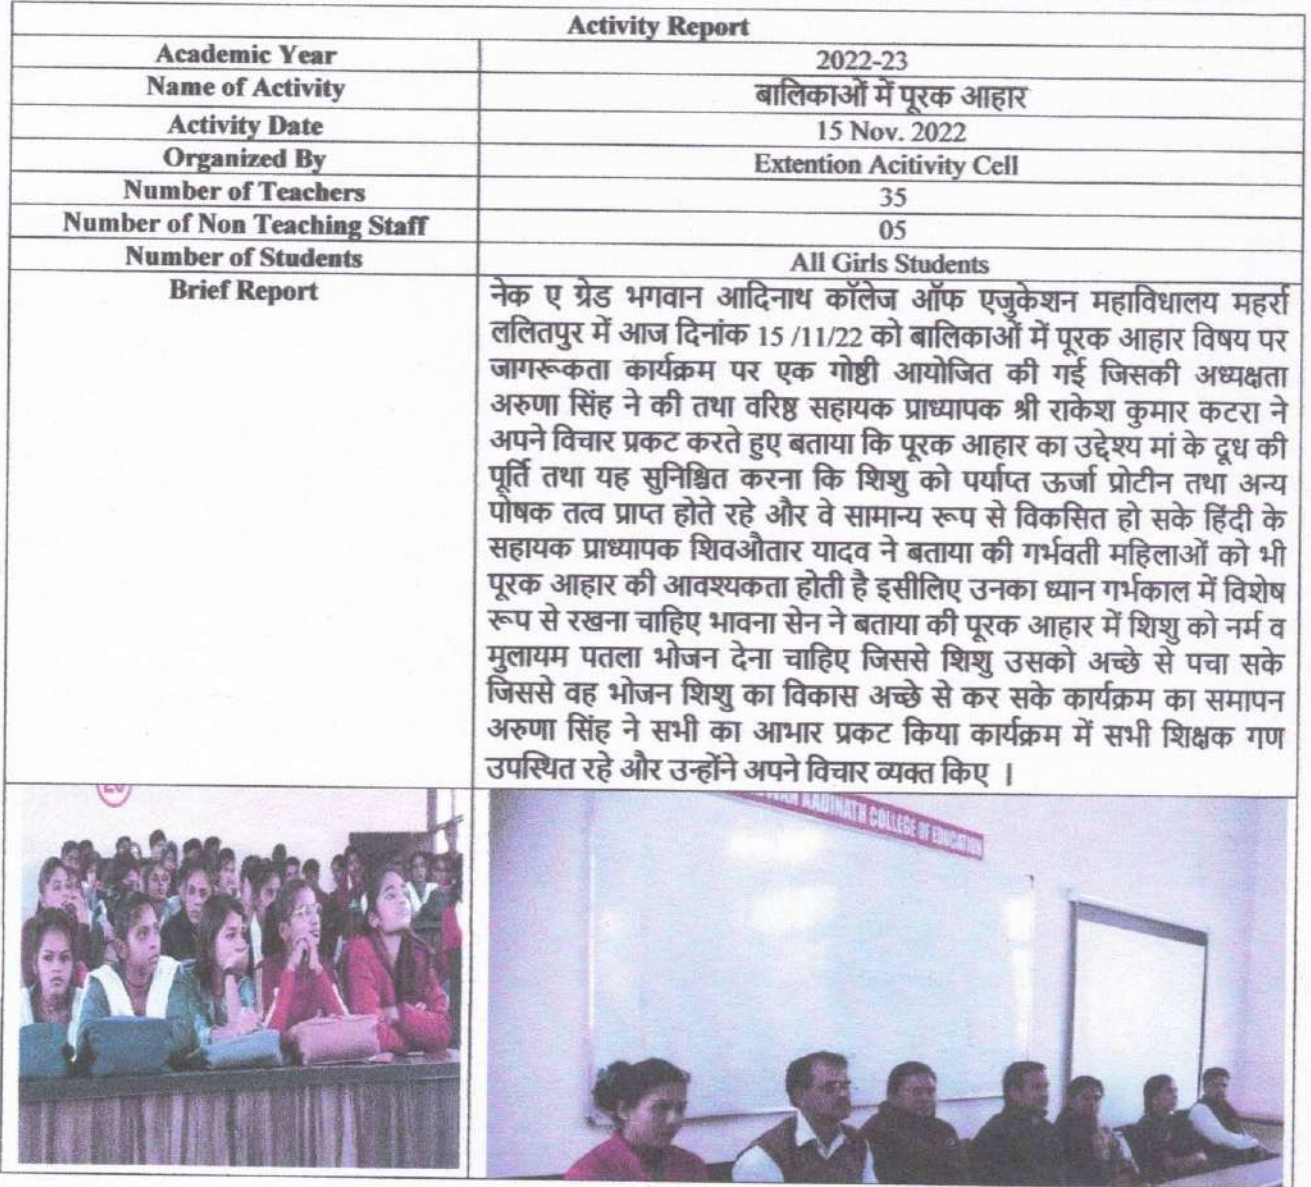 Activity Report
Academic Year 2022-23
Name of Activity बालिकाओं में पूरक आहार
Activity Date 15 Nov. 2022
Organized By Extention Acitivity Cell
Number of Teachers 35
Number of Non Teaching Staff 05
Number of Students All Girls Students
Brief Report
नेक ए ग्रेड भगवान आदिनाथ कॉलेज ऑफ एजुकेशन महाविधालय महर्रा
ललितपुर में आज दिनांक 15 /11/22 को बालिकाओं में पूरक आहार विषय पर
जागरूकता कार्यक्रम पर एक गोष्ठी आयोजित की गई जिसकी अध्यक्षता
अरुणा सिंह ने की तथा वरिष्ठ सहायक प्राध्यापक श्री राकेश कुमार कटरा ने
अपने विचार प्रकट करते हुए बताया कि पूरक आहार का उद्देश्य मां के दूध की
पूर्ति तथा यह सुनिश्चित करना कि शिशु को पर्याप्त ऊर्जा प्रोटीन तथा अन्य
पोषक तत्व प्राप्त होते रहे और वे सामान्य रूप से विकसित हो सके हिंदी के
सहायक प्राध्यापक शिवऔतार यादव ने बताया की गर्भवती महिलाओं को भी
पूरक आहार की आवश्यकता होती है इसीलिए उनका ध्यान गर्भकाल में विशेष
रूप से रखना चाहिए भावना सेन ने बताया की पूरक आहार में शिशु को नर्म व
मुलायम पतला भोजन देना चाहिए जिससे शिशु उसको अच्छे से पचा सके
जिससे वह भोजन शिशु का विकास अच्छे से कर सके कार्यक्रम का समापन
अरुणा सिंह ने सभी का आभार प्रकट किया कार्यक्रम में सभी शिक्षक गण
उपस्थित रहे और उन्होंने अपने विचार व्यक्त किए ।
AADINATH COLLEGE OF EDUCATION